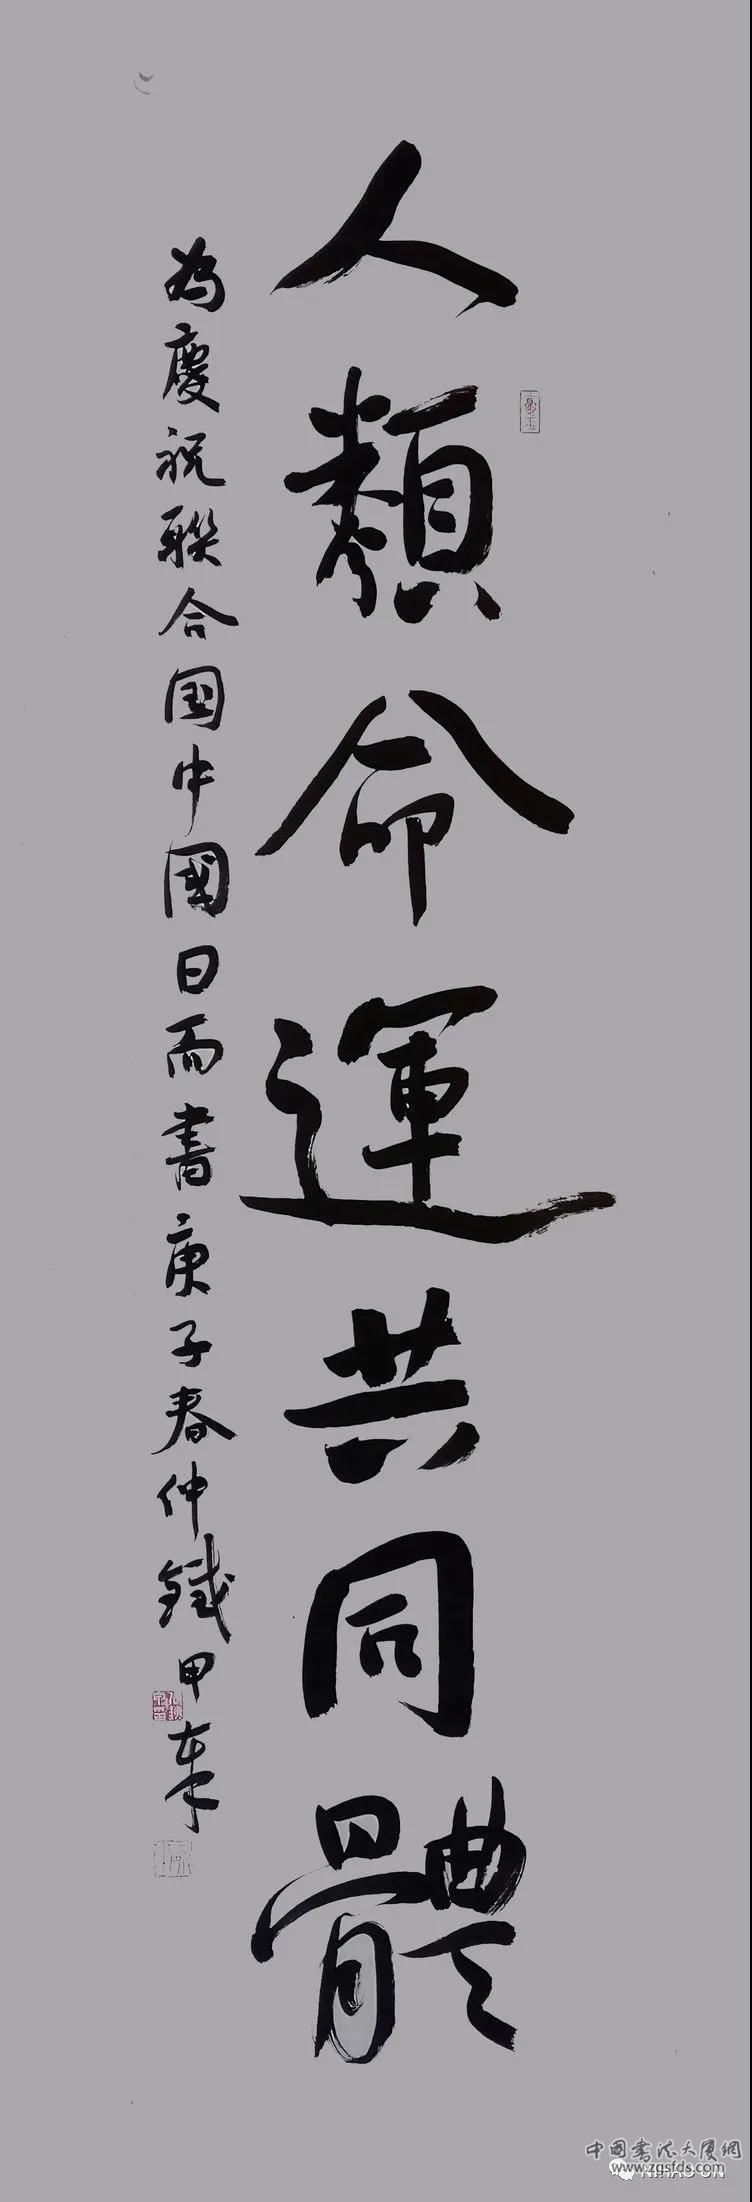 人類命運共同體
為慶祝聯合国中國日而書庚子春仲鐵甲奉
中国书法大厦網
www.zgsfds.com
NIHAO UN